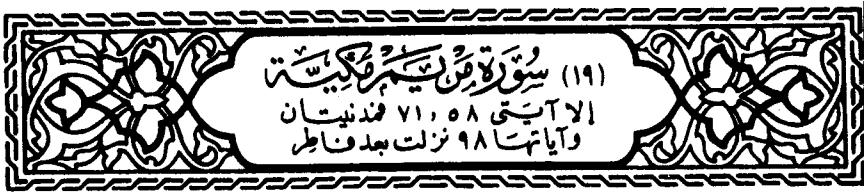 (١٩) سُورَة مَرْيَمْ مَكِيَّة
إلا آيتى ٥٨ ، ٧١ فمدنيتان
وآياتها ٩٨ نزلت بعد فاطر